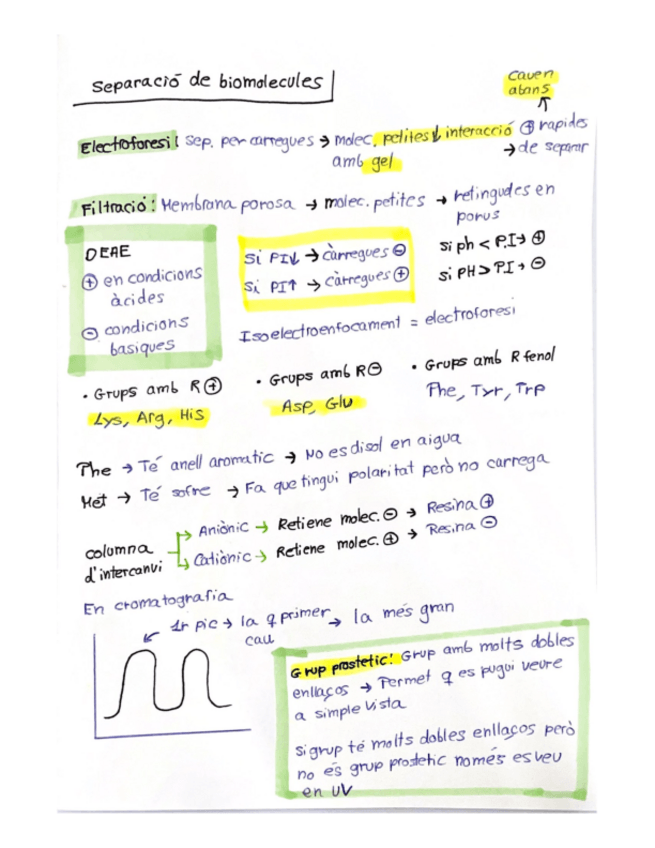 Separació de biomolecules
Cauen
abans
Electroforesi: Sep. per carregues → molec. petites ↓ interacció ⊕ rapides
amb gel → de separar
Filtració: Membrana porosa → molec. petites → retingudes en
porus
DEAE
⊕ en condicions
àcides
⊖ condicions
basiques
Si PI↓ → càrregues ⊖
Si PI↑ → càrregues ⊕
si ph < P.I → ⊕
si PH > P.I → ⊖
Isoelectroenfocament = electroforesi
• Grups amb R ⊕
Lys, Arg, His
• Grups amb R ⊖
Asp, Glu
• Grups amb R fenol
Phe, Tyr, Trp
Phe → Té anell aromatic → No es disol en aigua
Met → Té sofre → Fa que tingui polaritat però no carrega
columna
d'intercanvi
Aniònic → Retiene molec. ⊖ → Resina ⊕
Catiònic → Retiene molec. ⊕ → Resina ⊖
En cromatografia
1r pic → la q primer → la més gran
cau
Grup prostetic: Grup amb molts dobles
enllaços → Permet q es pugui veure
a simple vista
si grup té molts dobles enllaços però
no és grup prostetic només es veu
en UV